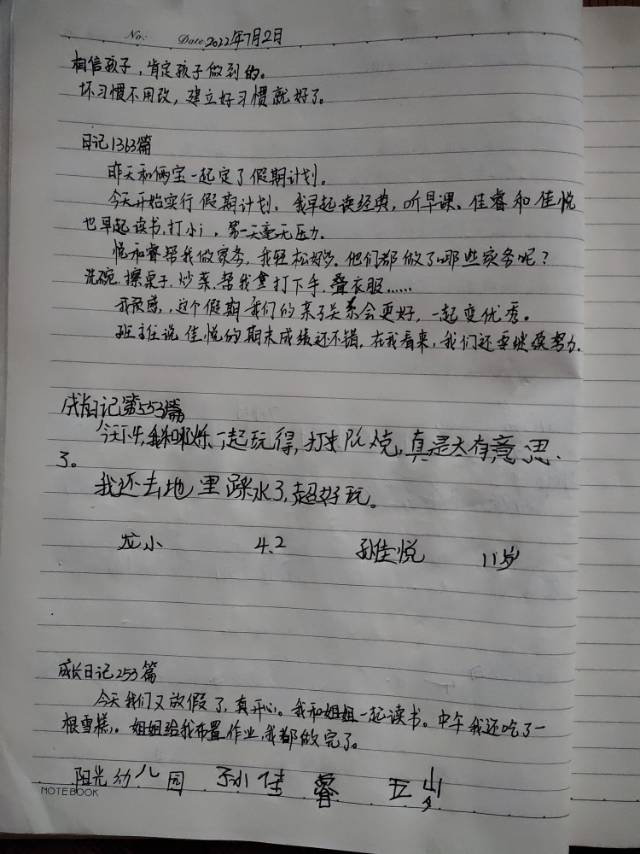 No: Date 2022年7月2日
相信孩子，肯定孩子做到的。
坏习惯不用改，建立好习惯就好了。
日记1363篇
昨天和俩宝一起定了假期计划。
今天开始实行假期计划，我早起读经典，听早课、佳睿和佳悦
也早起读书，打小，第一天毫无压力
悦和睿帮我做家务，我轻松好多，他们都做了哪些家务呢？
洗碗，擦桌子，炒菜，帮我拿打下手，叠衣服……
我很感，这个假期我们的亲子关系会更好，一起变优秀。
班主任说佳悦的期末成绩还不错，在我看来，我们还要继续努力.
成长日记第553篇
今天下午，我和一起玩得，打，真是太有意思
了。
我还去地里踩水了，超好玩。
龙小 4.2 孙佳悦 11岁
成长日记253篇
今天我们又放假了，真开心。我和姐姐一起读书。中午我还吃了一
根雪糕。姐姐给我布置作业，我都做完了。
阳光幼儿园 孙佳睿 五岁
NOTEBOOK